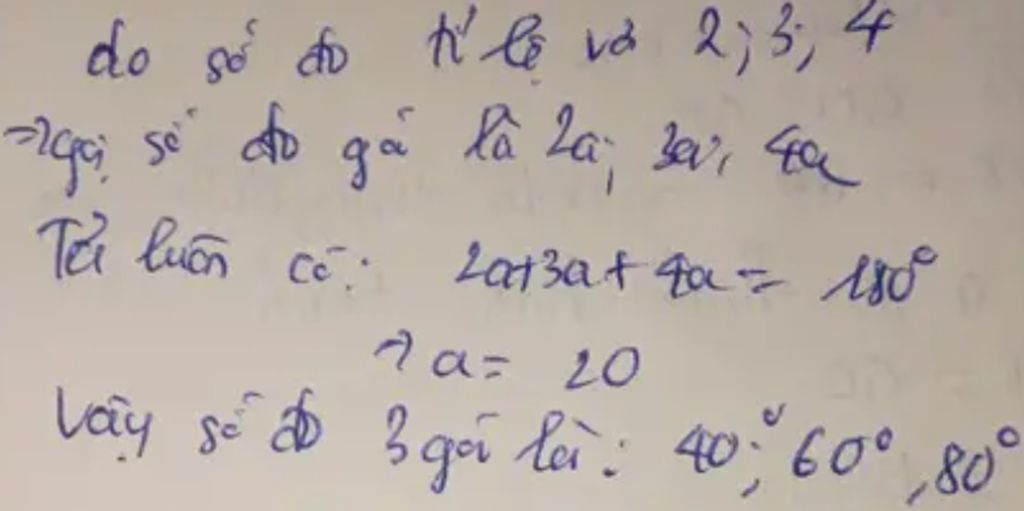 do số đo tỉ lệ với 2; 3; 4
→ gọi số đo gó là 2a; 3a; 4a
Ta luôn có: 2a+3a+4a = 180°
→ a = 20
Vậy số đo 3 gói là: 40°; 60°, 80°